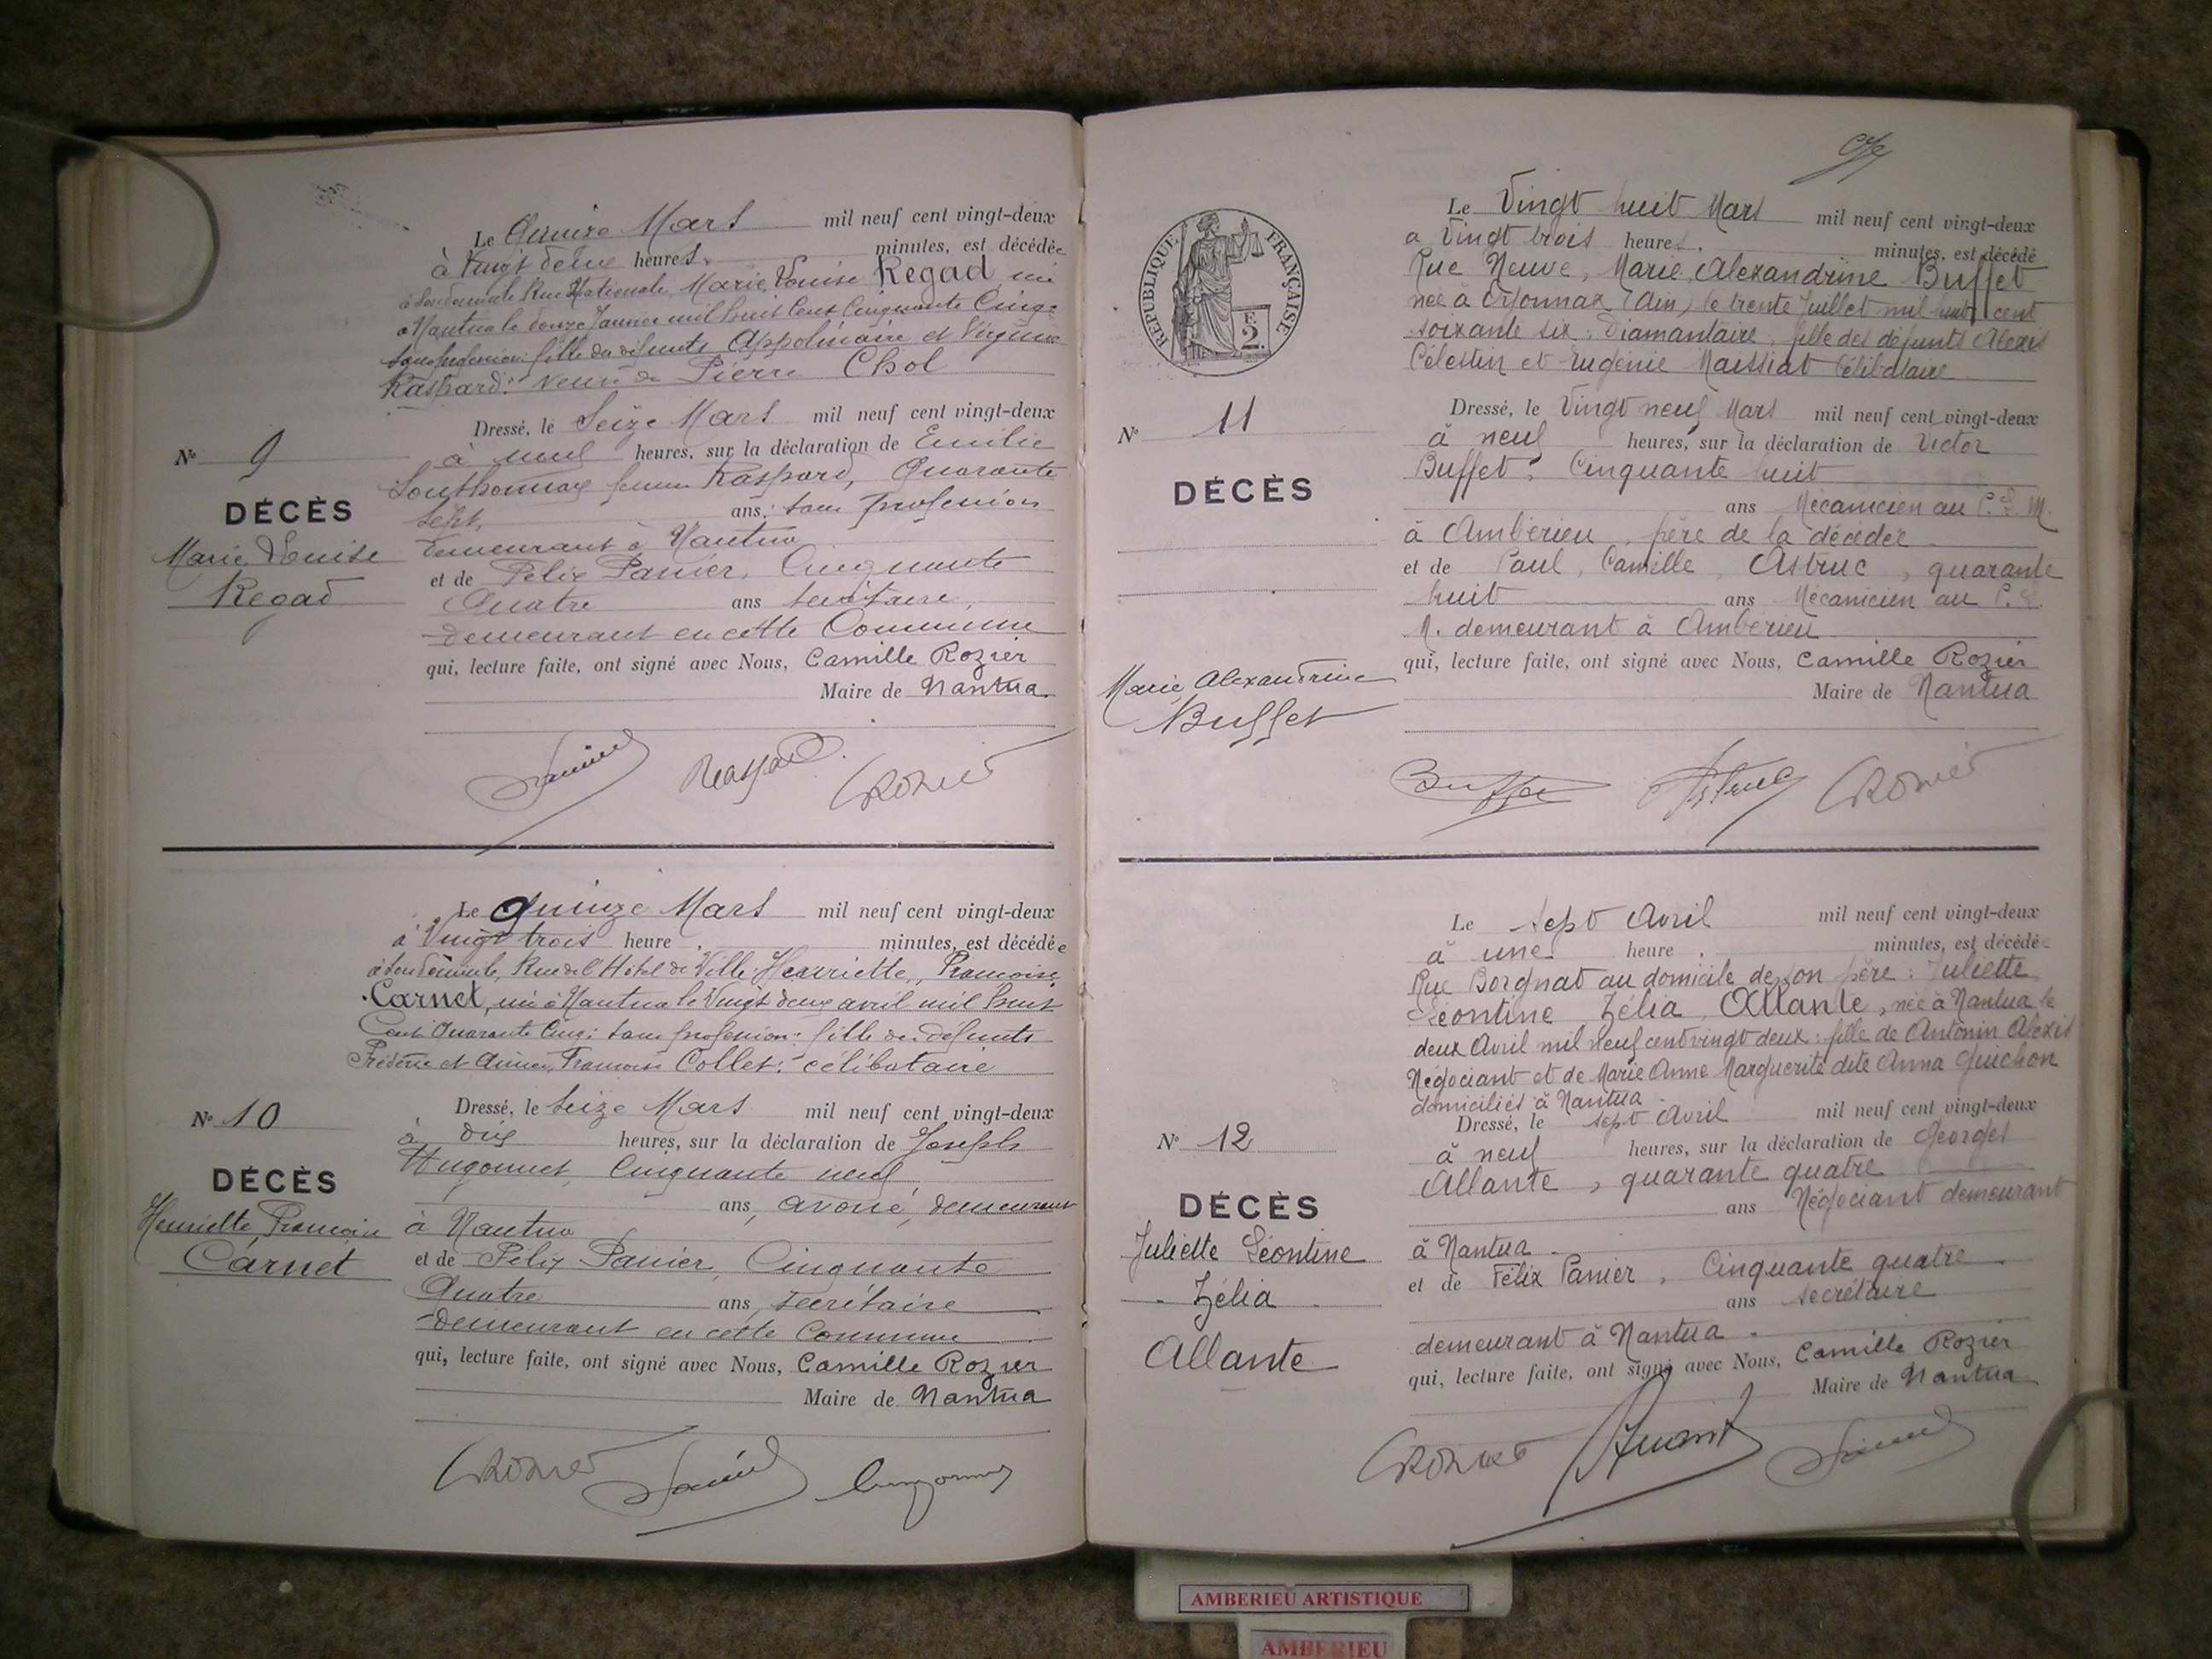 Le Quinze Mars mil neuf cent vingt-deux
à Vingt deux heures, minutes, est décédée
à son domicile Rue Nationale, Marie, Louise Regad née
à Nantua le douze Janvier mil huit Cent Cinquante Cinq:
sans profession: fille des défunts Appolinaire et Virginie
Raspard: veuve de Pierre Chol
Dressé, le Seize Mars mil neuf cent vingt-deux
à neuf heures, sur la déclaration de Emilie
Southonnax femme Raspard, Quarante
Sept, ans: sans profession
demeurant à Nantua
et de Felix Panier, Cinquante
Quatre ans secrétaire,
demeurant en cette Commune
qui, lecture faite, ont signé avec Nous, Camille Rozier
Maire de Nantua
No 9
DÉCÈS
Marie Louise
Regad
Panier Raspard CRozier
Le Quinze Mars mil neuf cent vingt-deux
à Vingt trois heure, minutes, est décédée
à son domicile, Rue de l'Hôtel de Ville: Henriette, Francoise
Carnet, née à Nantua le Vingt deux avril mil huit
Cent Quarante Cinq: sans profession: fille des défunts
Fréderic et Francoise Collet: célibataire
Dressé, le Seize Mars mil neuf cent vingt-deux
à dix heures, sur la déclaration de Joseph
Hugonnet, Cinquante neuf
ans, avoué, demeurant
à Nantua
et de Felix Panier, Cinquante
Quatre ans, secrétaire
demeurant en cette Commune
qui, lecture faite, ont signé avec Nous, Camille Rozier
Maire de Nantua
No 10
DÉCÈS
Henriette, Francoise
Carnet
CRozier Panier Hugonnet
RÉPUBLIQUE FRANÇAISE
F.
2.
Le Vingt huit Mars mil neuf cent vingt-deux
a Vingt trois heures. minutes, est décédé
Rue Neuve, Marie, Alexandrine Buffet
née à Oyonnax (Ain) le trente Juillet mil huit cent
soixante six: Diamantaire, fille des défunts Alexis
Célestin et Eugénie Maissiat Célibataire
Dressé, le Vingt neuf Mars mil neuf cent vingt-deux
à neuf heures, sur la déclaration de Victor
Buffet, Cinquante huit
ans Mécanicien au P.L.M.
à Ambérieu, père de la décédée
et de Paul, Camille, Astruc, quarante
huit ans Mécanicien au P.L.
M. demeurant à Ambérieu
qui, lecture faite, ont signé avec Nous, Camille Rozier
Maire de Nantua
No 11
DÉCÈS
Marie Alexandrine
Buffet
Buffet Astruc CRozier
Le sept Avril mil neuf cent vingt-deux
à une heure. minutes, est décédée
Rue Borgnat au domicile de son père: Juliette
Léontine Zélia Allante, née à Nantua le
deux Avril mil neuf cent vingt deux: fille de Antonin Alexis
Négociant et de Marie Anne Marguerite dite Anna Guichon
domiciliés à Nantua
Dressé, le sept Avril mil neuf cent vingt-deux
à neuf heures, sur la déclaration de Georges
Allante, quarante quatre
ans Négociant demeurant
à Nantua
et de Félix Panier, Cinquante quatre
ans secrétaire
demeurant à Nantua.
qui, lecture faite, ont signé avec Nous, Camille Rozier
Maire de Nantua
No 12
DÉCÈS
Juliette Léontine
Zélia
Allante
CRozier Panier
AMBERIEU ARTISTIQUE
AMBERIEU